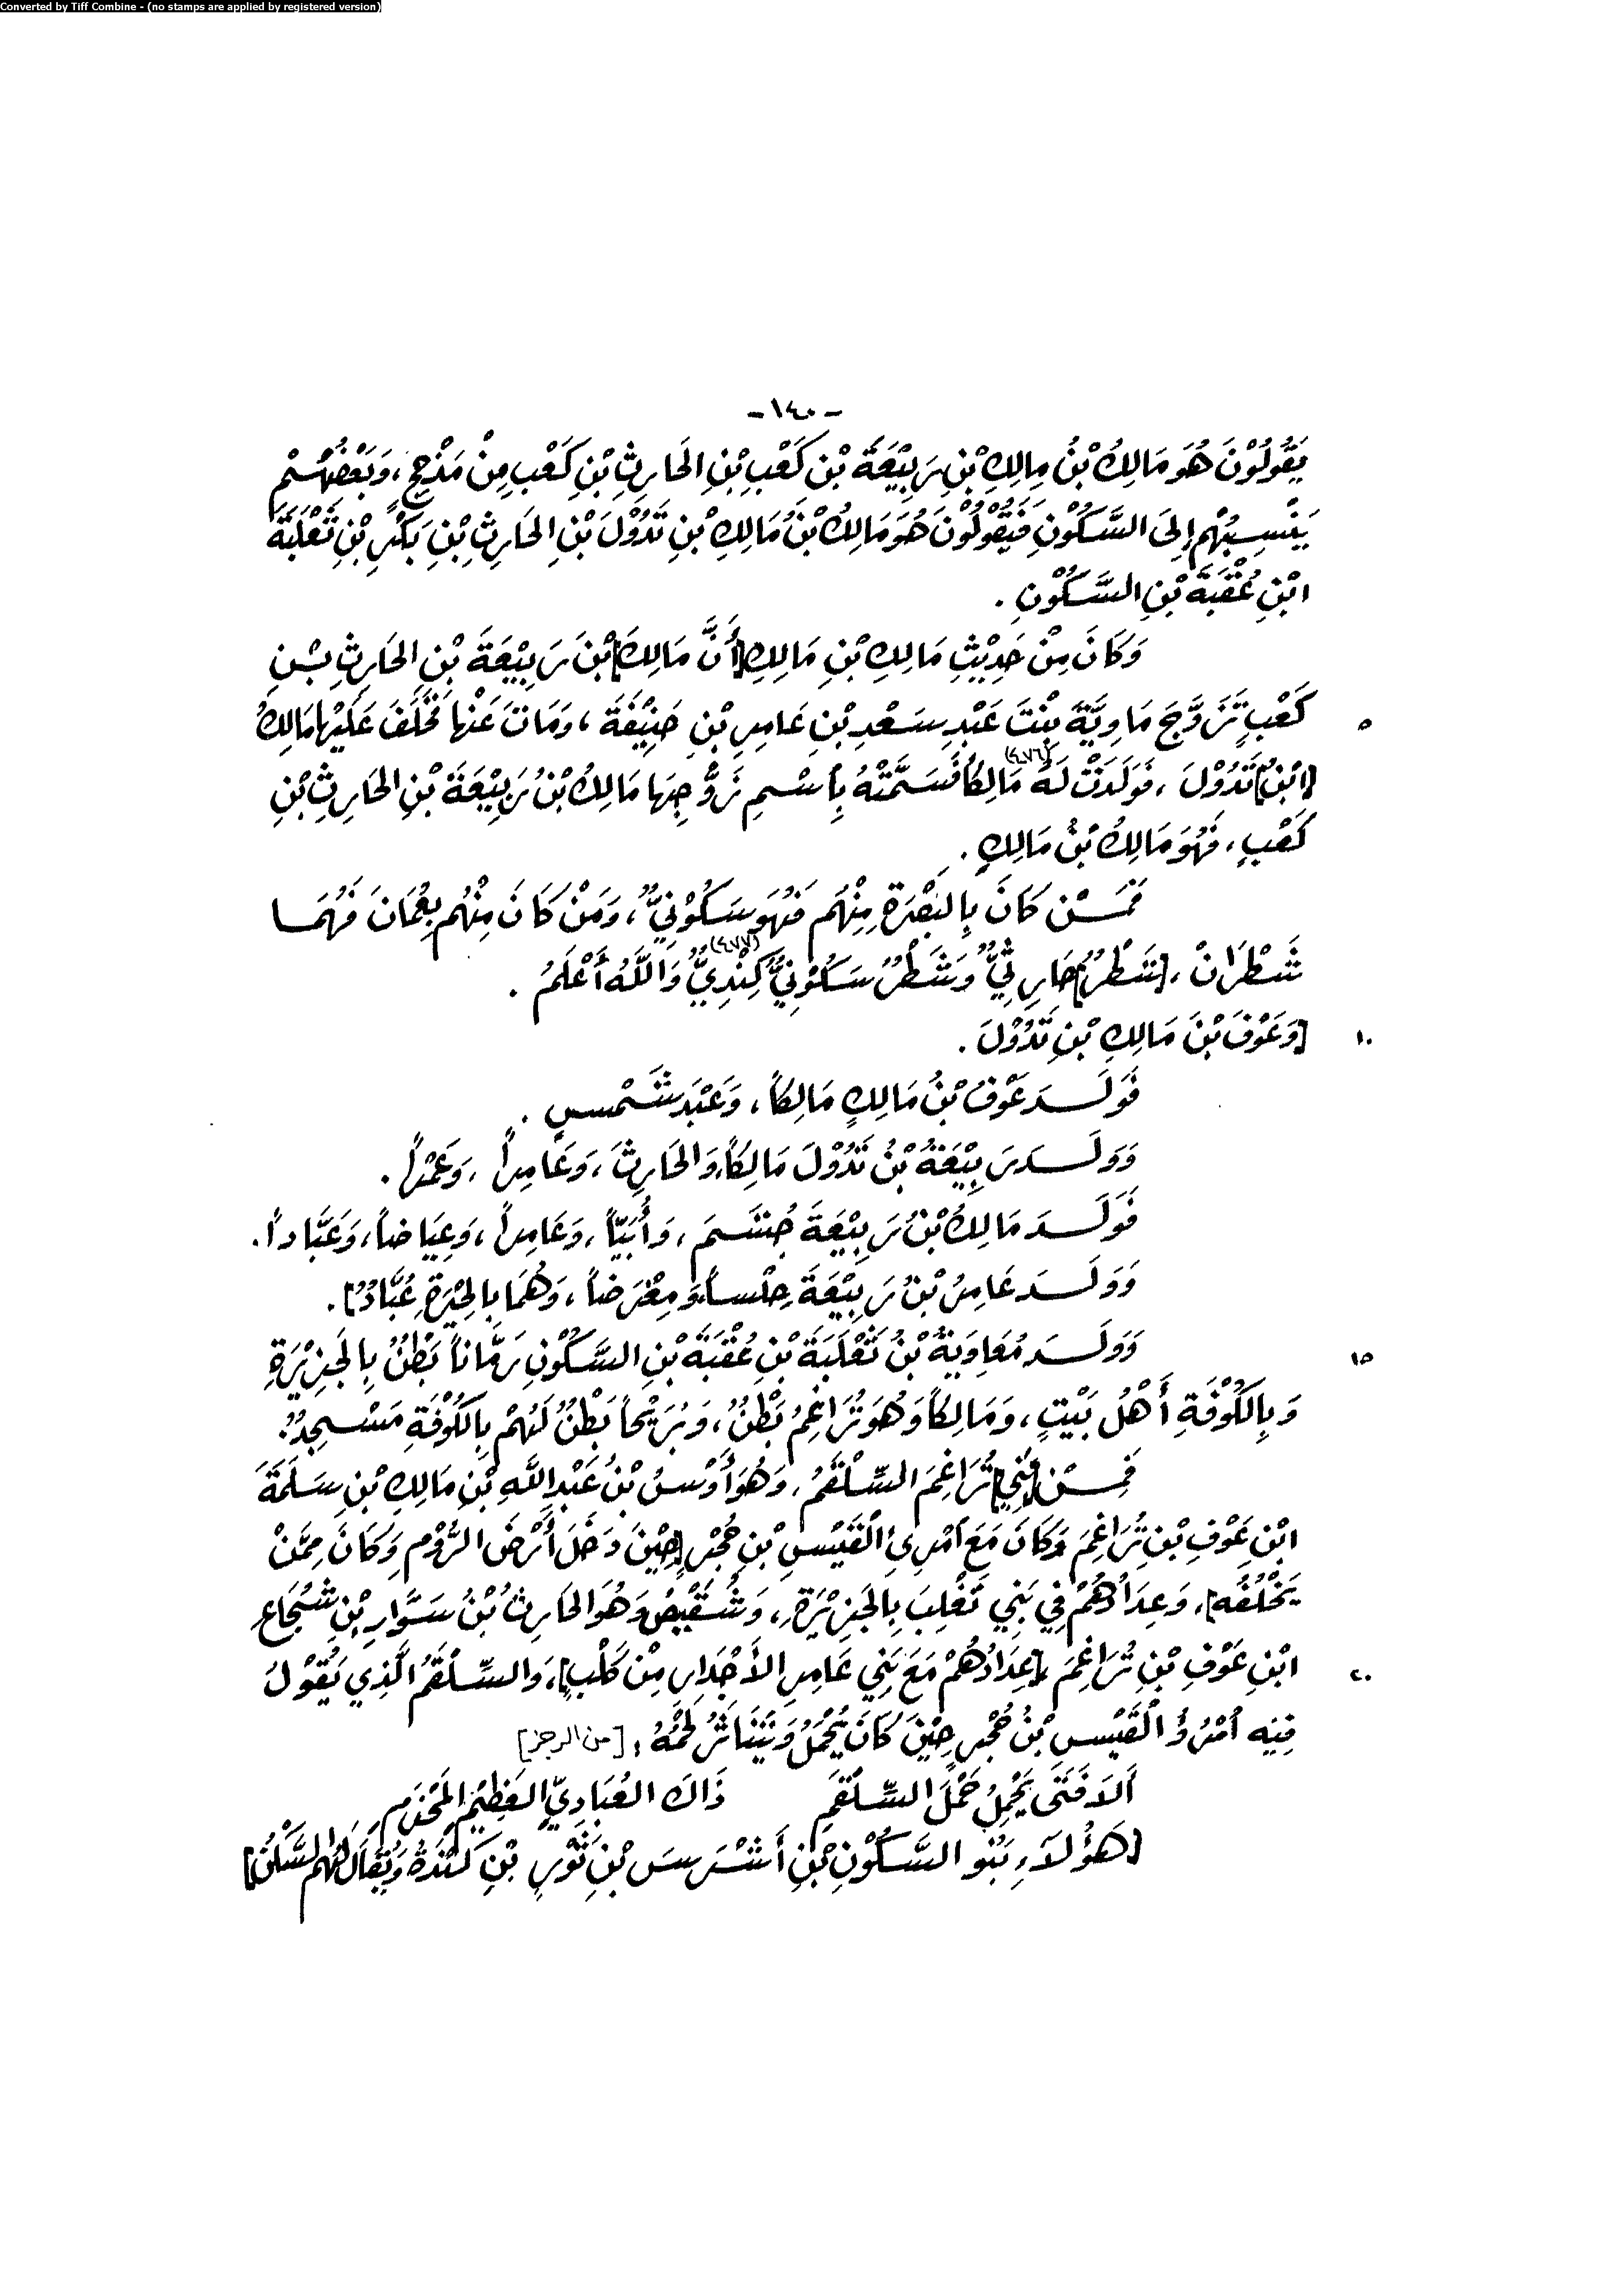 Converted by Tiff Combine - (no stamps are applied by registered version)
-١٤٠-
يَقُولُوْنَ هُوَ مَالِكُ بْنُ مِالِكِ بْنِ رَبِيْعَةَ بْنِ كَعْبِ بْنِ الحَارِثِ بْنِ كَعْبٍ مِنْ مَذْحِجٍ، وَبَعْضُهُمْ
يَنْسِبُهُم إِلَى السَّكُوْنِ فَيَقُوْلُوْنَ هُوَ مَالِكُ بْنُ مَالِكِ بْنِ تَدُوْلَ بْنِ الحَارِثِ بْنِ بَكْرِ بْنِ ثَعْلَبَةَ
ابْنِ عُقْبَةَ بْنِ السَّكُوْنِ .
وَكَانَ مِنْ حَدِيْثِ مَالِكِ بْنِ مَالِكِ [أَنَّ مَالِكَ] بْنَ رَبِيْعَةَ بْنِ الحَارِثِ بْنِ
٥ كَعْبٍ تَزَوَّجَ مَاوِيَّةَ بِنْتَ عَبْدِ سَعْدِ بْنِ عَامِرِ بْنِ حَنِيْفَةَ، وَمَاتَ عَنْها فَخَلَفَ عَلَيْها مَالِكُ
[ابْنُ] تَدُوْلَ، فَوَلَدَتْ لَهُ (٤٧٦) مَالِكاً فَسَمَّتْهُ بِأسْمِ زَوْجِهَا مَالِكُ بْنُ رَبِيْعَةَ بْنِ الحَارِثِ بْنِ
كَعْبٍ، فَهُوَ مَالِكُ بْنُ مَالِكٍ .
فَمَنْ كَانَ بِالبَصْرَةِ مِنْهُم فَهُوَ سَكُوْنِيٌّ، وَمَنْ كَانَ مِنْهُم بِعُمَانَ فَهُمَا
شَطْرَانْ، [شَطْرٌ] حَارِثِيٌّ وَشَطْرٌ سَكُوْنِيٌّ (٤٧٧) كِنْدِيٌّ وَاللَّهُ أَعْلَمُ .
١٠ [وَعَوْفَ بْنَ مَالِكِ بْنِ تَدُوْلَ .
فَوَلَدَ عَوْفُ بْنُ مَالِكٍ مَالِكاً، وَعَبْدَ شَمْسٍ .
وَوَلَدَ رَبِيْعَةُ بْنُ تَدُوْلَ مَالِكاً، وَالحَارِثَ، وَعَامِراً، وَعَمْراً .
فَوَلَدَ مَالِكُ بْنُ رَبِيْعَةَ جُشَمَ، وَأُبَيّاً، وَعَامِراً، وَعِيَاضاً، وَعَبَّاداً .
وَوَلَدَ عَامِرُ بْنُ رَبِيْعَةَ حِلْساً، وَمِعْرَضاً، وَهُمَا بِالحِيْرَةِ عُبَّادٌ] .
١٥ وَوَلَدَ مُعَاوِيَةُ بْنُ ثَعْلَبَةَ بْنِ عُقْبَةَ بْنِ السَّكُوْنِ رَمَّاناً بَطْنٌ بِالجَزِيْرَةِ
وَبِالكُوْفَةِ أَهْلُ بَيْتٍ، وَمَالِكاً وَهُوَ تُرَاغِمُ بَطْنٌ، وَبُرَيْحاً بَطْنٌ لَهُمْ بِالكُوْفَةِ مَسْجِدٌ .
فَمِنْ [بَنِي] تُرَاغِمَ السِّلْقَمُ، وَهُوَ أَوْسُ بْنُ عَبْدِ اللَّهِ بْنِ مَالِكِ بْنِ سَلَمَةَ
ابْنِ عَوْفِ بْنِ تُرَاغِمَ وَكَانَ مَعَ امْرِئِ القَيْسِ بْنِ حُجْرٍ [حِيْنَ دَخَلَ أَرْضَ الرُّوْمِ وَكَانَ مِمَّنْ
يَخْلُفُه]، وَعِدَادُهُمْ فِي بَنِي تَغْلِبَ بِالجَزِيْرَةِ، وَشُقَيْصٌ وَهُوَ الحَارِثُ بْنُ سَوَّارِ بْنِ شُجَاعِ
٢٠ ابْنِ عَوْفِ بْنِ تُرَاغِمَ [عِدَادُهُمْ مَعَ بَنِي عَامِرِ الأَجْدَارِ مِنْ كَلْبٍ]، وَالسِّلْقَمُ الَّذِي يَقُوْلُ
فِيْهِ امْرُؤُ القَيْسِ بْنُ حُجْرٍ حِيْنَ كَانَ يُحْمَلُ وَيَتَنَاثَرُ لَحْمُهُ : [من الرجز]
أَلاَ فَتَى يَحْمِلُ حَمْلَ السِّلْقَمِ ذَاكَ العُبَادِيِّ العَظِيْمِ المَحْزِمِ
[هَؤُلاَءِ بَنُو السَّكُوْنِ بْنِ أَشْرَسَ بْنِ ثَوْرِ بْنِ كِنْدَةَ وَيُقَالُ لَهُم السَّكَنُ]